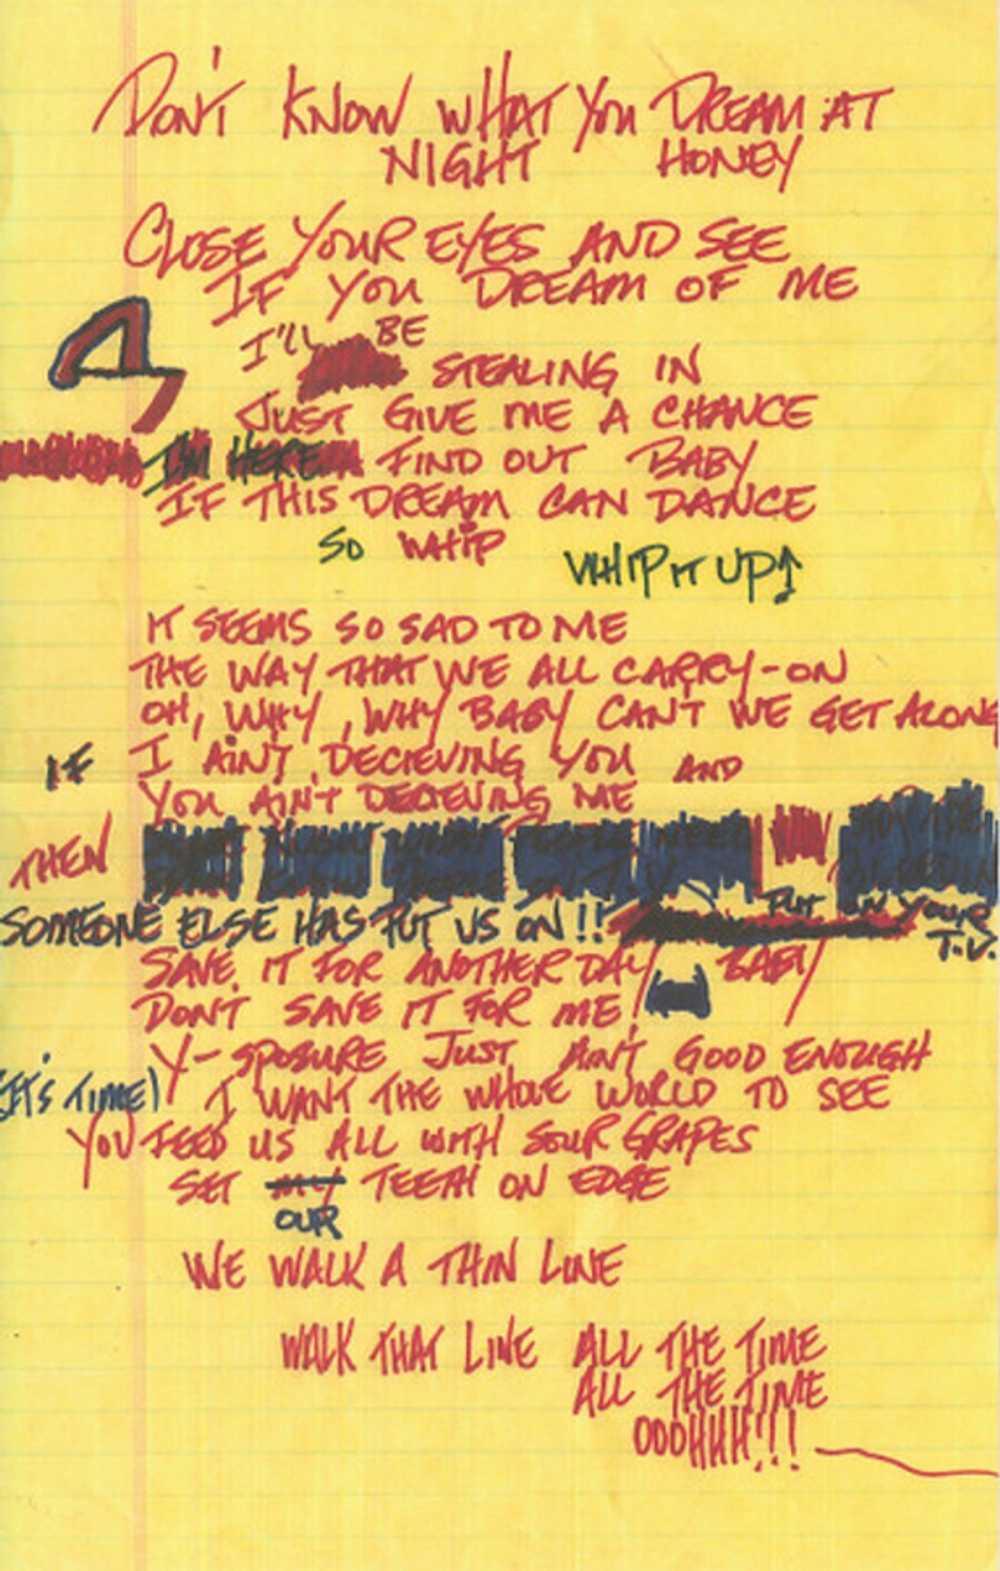 DON'T KNOW WHAT YOU DREAM AT
NIGHT HONEY
CLOSE YOUR EYES AND SEE
IF YOU DREAM OF ME
I'LL BE
STEALING IN
JUST GIVE ME A CHANCE
I'M HERE FIND OUT BABY
IF THIS DREAM CAN DANCE
SO WHIP WHIP IT UP↑
IT SEEMS SO SAD TO ME
THE WAY THAT WE ALL CARRY-ON
OH, WHY, WHY BABY CAN'T WE GET ALONG
IF I AIN'T DECIEVING YOU AND
YOU AIN'T DECIEVING ME
THEN
SOMEONE ELSE HAS PUT US ON!! PUT ON YOUR
T.V.
SAVE IT FOR ANOTHER DAY BABY
DON'T SAVE IT FOR ME!
X-SPOSURE JUST AIN'T GOOD ENOUGH
(IT'S TIME) I WANT THE WHOLE WORLD TO SEE
YOU FEED US ALL WITH SOUR GRAPES
SET MY TEETH ON EDGE
OUR
WE WALK A THIN LINE
WALK THAT LINE ALL THE TIME
ALL THE TIME
OOOHHH!!!